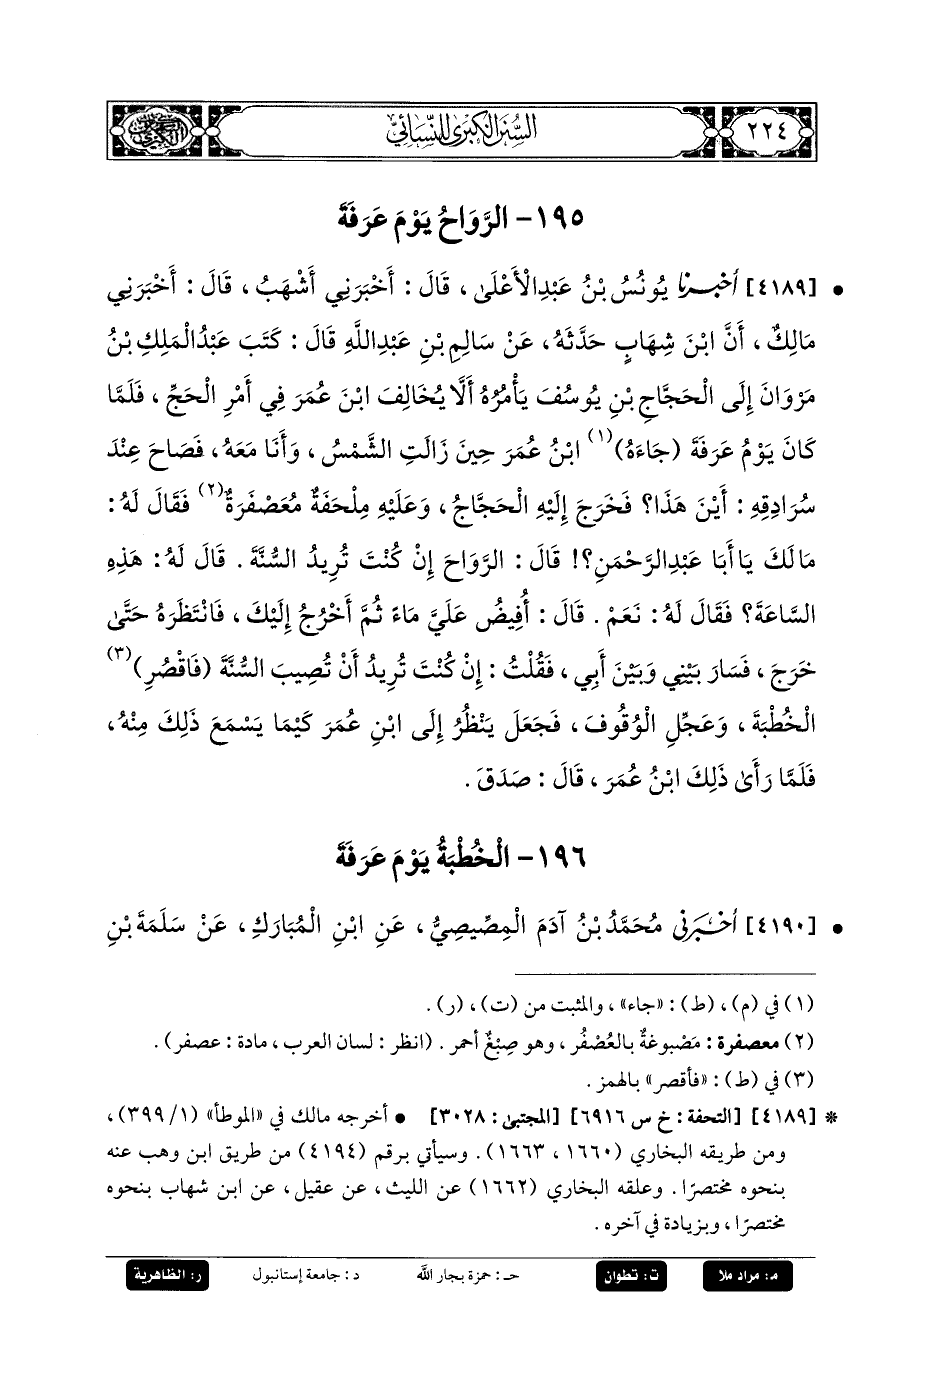 ٢٢٤
السنن الكبرى للنسائي
١٩٥- الرَّوَاحُ يَوْمَ عَرَفَةَ
• [٤١٨٩] أخبرنا يُونُسُ بْنُ عَبْدِالْأَعْلَى، قَالَ: أَخْبَرَنِي أَشْهَبُ، قَالَ: أَخْبَرَنِي
مَالِكٌ، أَنَّ ابْنَ شِهَابٍ حَدَّثَهُ، عَنْ سَالِمِ بْنِ عَبْدِاللَّهِ قَالَ: كَتَبَ عَبْدُالْمَلِكِ بْنُ
مَرْوَانَ إِلَى الْحَجَّاجِ بْنِ يُوسُفَ يَأْمُرُهُ أَلَّا يُخَالِفَ ابْنَ عُمَرَ فِي أَمْرِ الْحَجِّ، فَلَمَّا
كَانَ يَوْمُ عَرَفَةَ (جَاءَهُ)(١) ابْنُ عُمَرَ حِينَ زَالَتِ الشَّمْسُ، وَأَنَا مَعَهُ، فَصَاحَ عِنْدَ
سُرَادِقِهِ: أَيْنَ هَذَا؟ فَخَرَجَ إِلَيْهِ الْحَجَّاجُ، وَعَلَيْهِ مِلْحَفَةٌ مُعَصْفَرَةٌ(٢) فَقَالَ لَهُ:
مَا لَكَ يَا أَبَا عَبْدِالرَّحْمَنِ؟! قَالَ: الرَّوَاحَ إِنْ كُنْتَ تُرِيدُ السُّنَّةَ. قَالَ لَهُ: هَذِهِ
السَّاعَةَ؟ فَقَالَ لَهُ: نَعَمْ. قَالَ: أُفِيضُ عَلَيَّ مَاءً ثُمَّ أَخْرُجُ إِلَيْكَ، فَانْتَظَرَهُ حَتَّى
خَرَجَ، فَسَارَ بَيْنِي وَبَيْنَ أَبِي، فَقُلْتُ: إِنْ كُنْتَ تُرِيدُ أَنْ تُصِيبَ السُّنَّةَ (فَاقْصُرِ)(٣)
الْخُطْبَةَ، وَعَجِّلِ الْوُقُوفَ، فَجَعَلَ يَنْظُرُ إِلَى ابْنِ عُمَرَ كَيْمَا يَسْمَعَ ذَلِكَ مِنْهُ،
فَلَمَّا رَأَى ذَلِكَ ابْنُ عُمَرَ، قَالَ: صَدَقَ.
١٩٦- الْخُطْبَةُ يَوْمَ عَرَفَةَ
• [٤١٩٠] أخبرني مُحَمَّدُ بْنُ آدَمَ الْمِصِّيصِيُّ، عَنِ ابْنِ الْمُبَارَكِ، عَنْ سَلَمَةَ بْنِ
(١) في (م)، (ط): «جاء»، والمثبت من (ت)، (ر).
(٢) معصفرة: مَصْبوغةٌ بالعُصْفُر، وهو صِبْغٌ أحمر. (انظر: لسان العرب، مادة: عصفر).
(٣) في (ط): «فأقصر» بالهمز.
* [٤١٨٩] [التحفة: خ س ٦٩١٦] [المجتبى: ٣٠٢٨] • أخرجه مالك في «الموطأ» (١/ ٣٩٩)،
ومن طريقه البخاري (١٦٦٠، ١٦٦٣). وسيأتي برقم (٤١٩٤) من طريق ابن وهب عنه
بنحوه مختصرًا. وعلقه البخاري (١٦٦٢) عن الليث، عن عقيل، عن ابن شهاب بنحوه
مختصرًا، وبزيادة في آخره.
م: مراد ملا ت: تطوان حـ: حمزة بجار الله د: جامعة إستانبول ر: الظاهرية